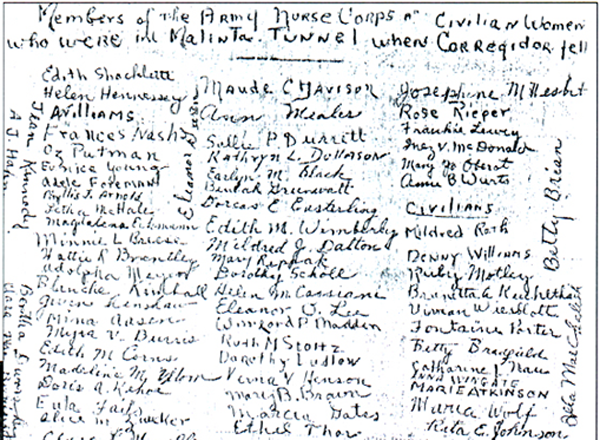 Members of the Army Nurse Corps & Civilian Women
who were in Malinta Tunnel when Corregidor fell
Edith Shacklette
Helen Hennessey
A Williams
Frances Nash
Oz Putman
Eunice Young
Adele Foreman
Phyllis J. Arnold
Letha McHale
Magdalena Eckmann
Minnie L. Breese
Hattie R Brantley
Adolpha Meyer
Blanche Kimball
Gwen Henshaw
Mina Aasen
Myra V. Burris
Edith M Corns
Madeline M.
Doris A. Kehoe
Eula Fails
Alice M.
Maude C Davison
Ann Mealer
Sallie P. Durrett
Kathryn L. Dollarson
Earlyn M. Black
Beulah Greenwalt
Dorcas E Easterling
Edith M. Wimberly
Mildred J. Dalton
Mary
Dorothy Scholl
Helen M Cassiani
Eleanor O. Lee
Winifred P Madden
Ruth M Stoltz
Dorothy Ludlow
Verna V. Henson
Mary B. Brown
Marcia Gates
Ethel Thor
Josephine M Nesbit
Rose Rieper
Frankie Lewey
Inez V. McDonald
Mary Jo Oberst
Anne B. Wurts
Civilians
Mildred Roth
Denny Williams
Ruby Motley
Brunetta A Kuehlthau
Vivian Weisblatt
Fontaine Porter
Betty Bradfield
Catharine L Nau
Anna Wingate
Marie Atkinson
Maria Wolf
Rita E. Johnson
Jean Kennedy
Eleanor
Betty Brian